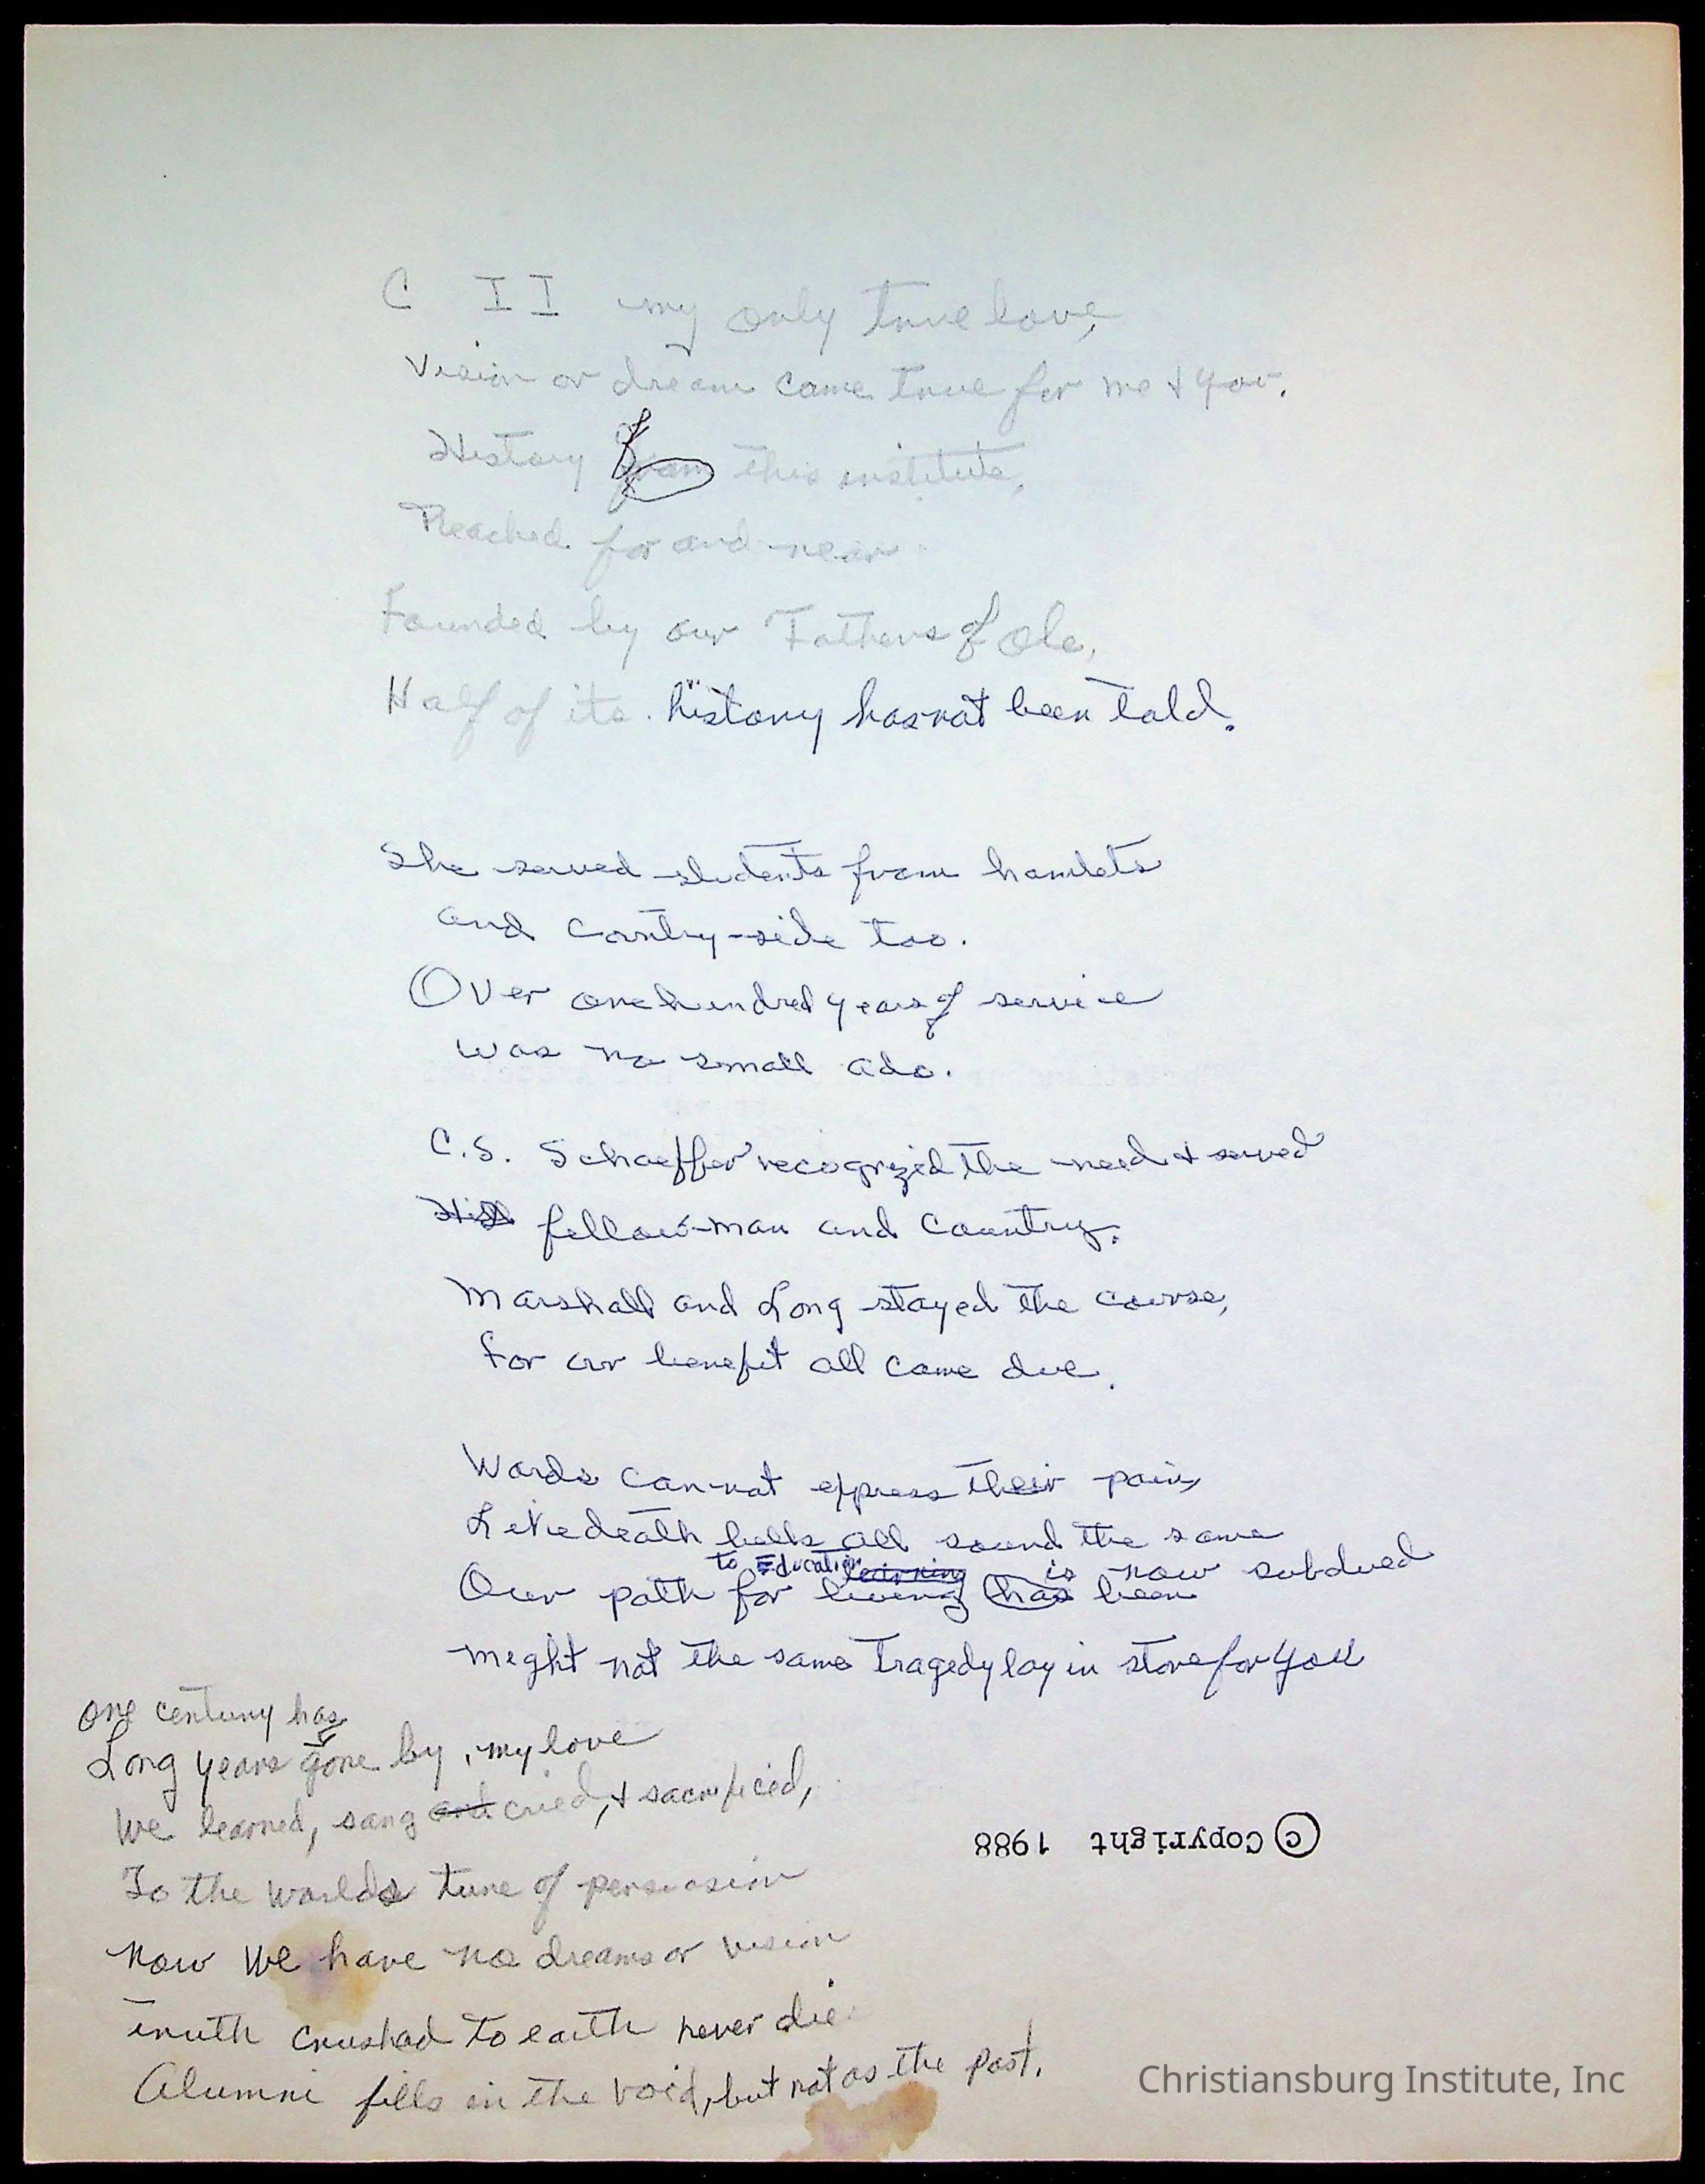 C I I my only true love,
Vision or dream came true for me & you.
of
History from this institute,
Reached far and near
Founded by our Fathers of ole,
Half of its history has not been told.
She served students from hamlets
and country-side too.
Over one hundred years of service
was no small ado.
C.S. Schaeffer recognized the need & served
His fellow-man and country.
Marshall and Long stayed the course,
For our benefit all came due.
Words cannot express their pain,
Like death bells all sound the same
to Education learning is now subdued
Our path for living has been
might not the same tragedy lay in store for you
one century has
Long years gone by, my love
We learned, sang and cried, & sacrificed,
To the worlds tune of persuasion
Now we have no dreams or vision
truth crushed to earth never die
Alumni fills in the void, but not as the past.
© Copyright 1988
Christiansburg Institute, Inc